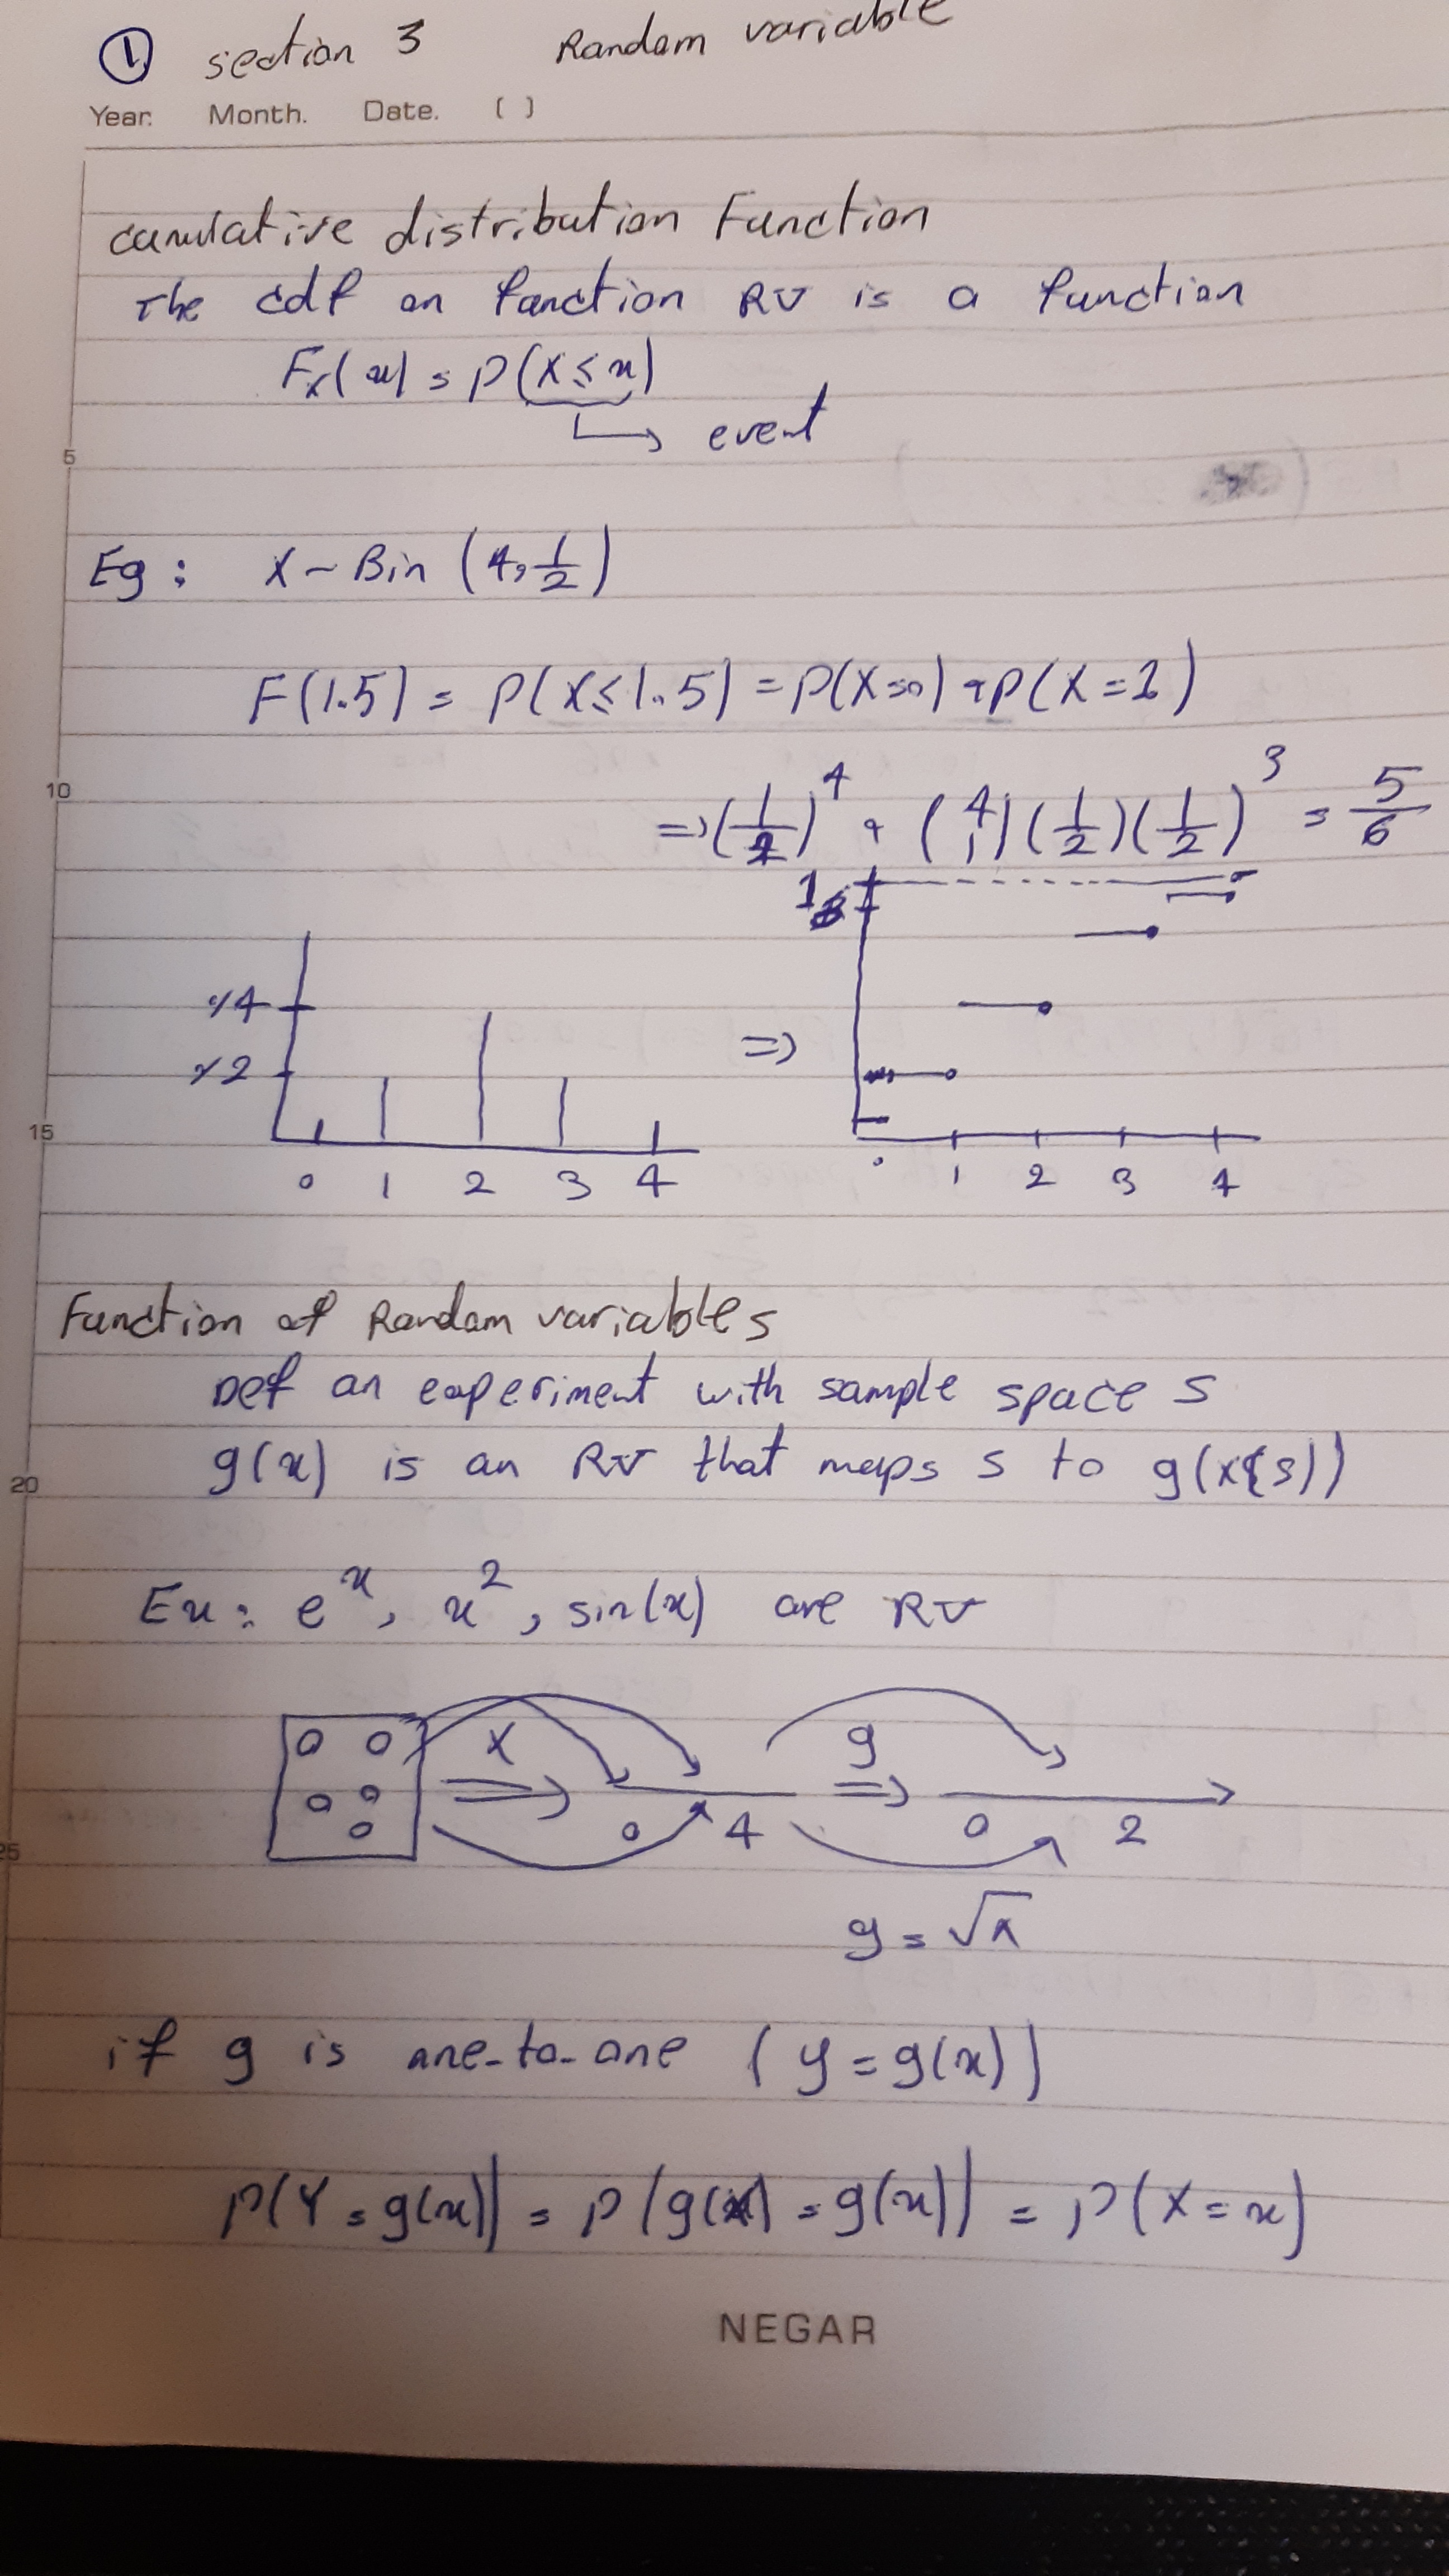 ① section 3 Random variable
Year. Month. Date. ( )
cumulative distribution Function
The cdf on function RV is a function
Fx(x) = P(X ≤ x)
↳ event
5
Eg : X ~ Bin (4, 1/2)
F(1.5) = P(X ≤ 1.5) = P(X=0) + P(X=1)
10
=> (1/2)^4 + (4 1)(1/2)(1/2)^3 = 5/6
1
·/4
·/2
=>
15
0 1 2 3 4
0 1 2 3 4
Function of Random variables
Def an experiment with sample space S
20
g(x) is an RV that maps s to g(x(s))
Ex: e^x, x^2, sin(x) are RV
X g
0 4 => 0 2
25
g = √x
if g is one-to-one (y = g(x))
P(Y = g(x)) = P(g(X) = g(x)) = P(X = x)
NEGAR